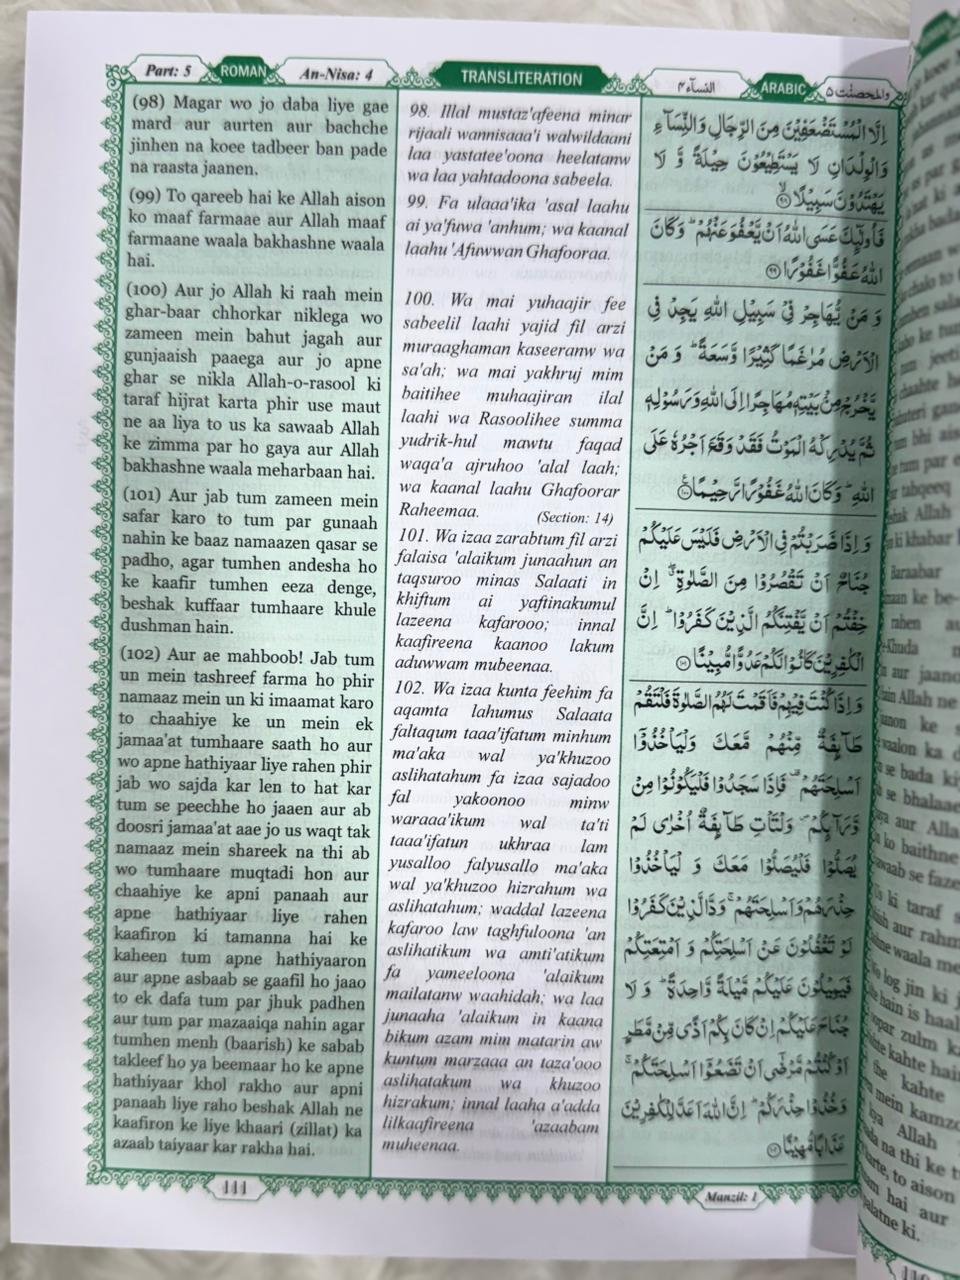 Part: 5
ROMAN
An-Nisa: 4
TRANSLITERATION
النسآء ۴
ARABIC
والمحصنٰت ۵
(98) Magar wo jo daba liye gae
mard aur aurten aur bachche
jinhen na koee tadbeer ban pade
na raasta jaanen.
(99) To qareeb hai ke Allah aison
ko maaf farmaae aur Allah maaf
farmaane waala bakhashne waala
hai.
(100) Aur jo Allah ki raah mein
ghar-baar chhorkar niklega wo
zameen mein bahut jagah aur
gunjaaish paaega aur jo apne
ghar se nikla Allah-o-rasool ki
taraf hijrat karta phir use maut
ne aa liya to us ka sawaab Allah
ke zimma par ho gaya aur Allah
bakhashne waala meharbaan hai.
(101) Aur jab tum zameen mein
safar karo to tum par gunaah
nahin ke baaz namaazen qasar se
padho, agar tumhen andesha ho
ke kaafir tumhen eeza denge,
beshak kuffaar tumhaare khule
dushman hain.
(102) Aur ae mahboob! Jab tum
un mein tashreef farma ho phir
namaaz mein un ki imaamat karo
to chaahiye ke un mein ek
jamaa'at tumhaare saath ho aur
wo apne hathiyaar liye rahen phir
jab wo sajda kar len to hat kar
tum se peechhe ho jaaen aur ab
doosri jamaa'at aae jo us waqt tak
namaaz mein shareek na thi ab
wo tumhaare muqtadi hon aur
chaahiye ke apni panaah aur
apne hathiyaar liye rahen
kaafiron ki tamanna hai ke
kaheen tum apne hathiyaaron
aur apne asbaab se gaafil ho jaao
to ek dafa tum par jhuk padhen
aur tum par mazaaiqa nahin agar
tumhen menh (baarish) ke sabab
takleef ho ya beemaar ho ke apne
hathiyaar khol rakho aur apni
panaah liye raho beshak Allah ne
kaafiron ke liye khaari (zillat) ka
azaab taiyaar kar rakha hai.
98. Illal mustaz'afeena minar
rijaali wannisaaa'i walwildaani
laa yastatee'oona heelatanw
wa laa yahtadoona sabeela.
99. Fa ulaaa'ika 'asal laahu
ai ya'fuwa 'anhum; wa kaanal
laahu 'Afuwwan Ghafooraa.
100. Wa mai yuhaajir fee
sabeelil laahi yajid fil arzi
muraaghaman kaseeranw wa
sa'ah; wa mai yakhruj mim
baitihee muhaajiran ilal
laahi wa Rasoolihee summa
yudrik-hul mawtu faqad
waqa'a ajruhoo 'alal laah;
wa kaanal laahu Ghafoorar
Raheemaa.
(Section: 14)
101. Wa izaa zarabtum fil arzi
falaisa 'alaikum junaahun an
taqsuroo minas Salaati in
khiftum ai yaftinakumul
lazeena kafarooo; innal
kaafireena kaanoo lakum
aduwwam mubeenaa.
102. Wa izaa kunta feehim fa
aqamta lahumus Salaata
faltaqum taaa'ifatum minhum
ma'aka wal ya'khuzoo
aslihatahum fa izaa sajadoo
fal yakoonoo minw
waraaa'ikum wal ta'ti
taaa'ifatun ukhraa lam
yusalloo falyusalloo ma'aka
wal ya'khuzoo hizrahum wa
aslihatahum; waddal lazeena
kafaroo law taghfuloona 'an
aslihatikum wa amti'atikum
fa yameeloona 'alaikum
mailatanw waahidah; wa laa
junaaha 'alaikum in kaana
bikum azam mim matarin aw
kuntum marzaaa an taza'ooo
aslihatakum wa khuzoo
hizrakum; innal laaha a'adda
lilkaafireena 'azaabam
muheenaa.
اِلَّا الْمُسْتَضْعَفِيْنَ مِنَ الرِّجَالِ وَالنِّسَآءِ
وَالْوِلْدَانِ لَا يَسْتَطِيْعُوْنَ حِيْلَةً وَّ لَا
يَهْتَدُوْنَ سَبِيْلًا ۙ۹۸
فَاُولٰٓئِكَ عَسَى اللّٰهُ اَنْ يَّعْفُوَ عَنْهُمْ ؕ وَكَانَ
اللّٰهُ عَفُوًّا غَفُوْرًا ۹۹
وَ مَنْ يُّهَاجِرْ فِيْ سَبِيْلِ اللّٰهِ يَجِدْ فِي
الْاَرْضِ مُرٰغَمًا كَثِيْرًا وَّسَعَةً ؕ وَ مَنْ
يَّخْرُجْ مِنْۢ بَيْتِهٖ مُهَاجِرًا اِلَى اللّٰهِ وَرَسُوْلِهٖ
ثُمَّ يُدْرِكْهُ الْمَوْتُ فَقَدْ وَقَعَ اَجْرُهٗ عَلَى
اللّٰهِ ؕ وَكَانَ اللّٰهُ غَفُوْرًا رَّحِيْمًا ۱۰۰
وَ اِذَا ضَرَبْتُمْ فِي الْاَرْضِ فَلَيْسَ عَلَيْكُمْ
جُنَاحٌ اَنْ تَقْصُرُوْا مِنَ الصَّلٰوةِ ۖ اِنْ
خِفْتُمْ اَنْ يَّفْتِنَكُمُ الَّذِيْنَ كَفَرُوْا ؕ اِنَّ
الْكٰفِرِيْنَ كَانُوْا لَكُمْ عَدُوًّا مُّبِيْنًا ۱۰۱
وَ اِذَا كُنْتَ فِيْهِمْ فَاَقَمْتَ لَهُمُ الصَّلٰوةَ فَلْتَقُمْ
طَآئِفَةٌ مِّنْهُمْ مَّعَكَ وَلْيَاْخُذُوْۤا
اَسْلِحَتَهُمْ ۟ فَاِذَا سَجَدُوْا فَلْيَكُوْنُوْا مِنْ
وَّرَآئِكُمْ ۪ وَلْتَاْتِ طَآئِفَةٌ اُخْرٰى لَمْ
يُصَلُّوْا فَلْيُصَلُّوْا مَعَكَ وَ لْيَاْخُذُوْا
حِذْرَهُمْ وَاَسْلِحَتَهُمْ ۚ وَدَّ الَّذِيْنَ كَفَرُوْا
لَوْ تَغْفُلُوْنَ عَنْ اَسْلِحَتِكُمْ وَ اَمْتِعَتِكُمْ
فَيَمِيْلُوْنَ عَلَيْكُمْ مَّيْلَةً وَّاحِدَةً ؕ وَ لَا
جُنَاحَ عَلَيْكُمْ اِنْ كَانَ بِكُمْ اَذًى مِّنْ مَّطَرٍ
اَوْ كُنْتُمْ مَّرْضٰۤى اَنْ تَضَعُوْۤا اَسْلِحَتَكُمْ ۚ
وَخُذُوْا حِذْرَكُمْ ؕ اِنَّ اللّٰهَ اَعَدَّ لِلْكٰفِرِيْنَ
عَذَابًا مُّهِيْنًا ۱۰۲
Manzil: 1